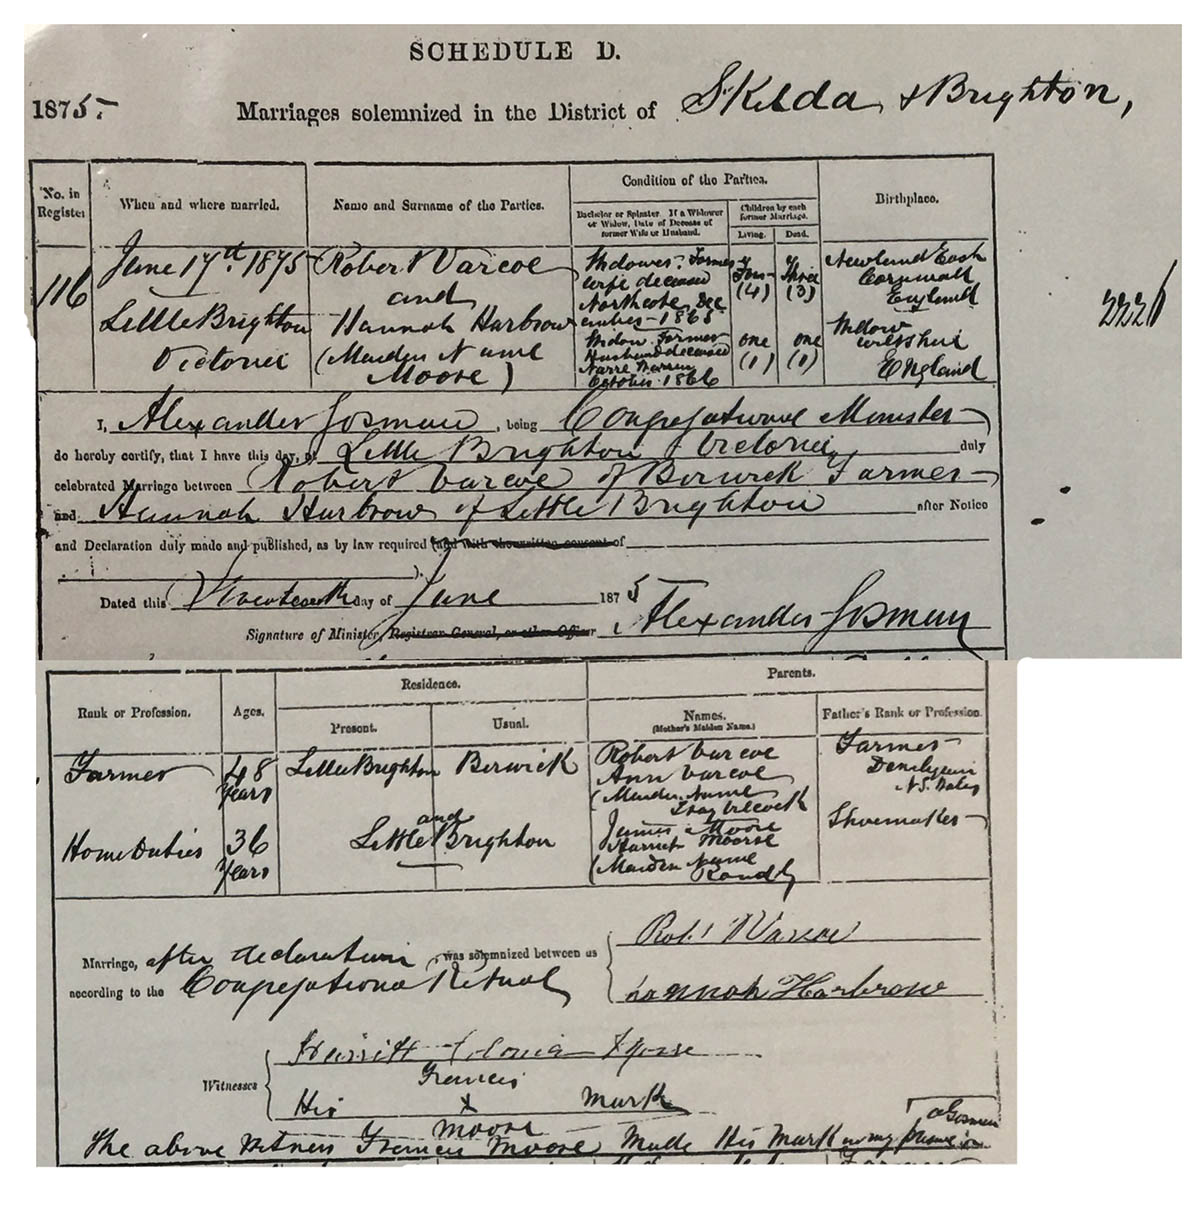 SCHEDULE D.
1875. Marriages solemnized in the District of St Kilda & Brighton,
No. in Register
When and where married.
Name and Surname of the Parties.
Condition of the Parties.
Bachelor or Spinster. If a Widower or Widow, Date of Decease of former Wife or Husband.
Children by each former Marriage.
Living.
Dead.
Birthplace.
116
June 17th 1875
Little Brighton
Victoria
Robert Varcoe
and
Hannah Harbrow
(Maiden Name
Moore)
Widower. Former
wife deceased
Northcote, Dec
ember 1868
Four
(4)
Three
(3)
Newland East
Cornwall
England
Widow Former
Husband deceased
Narre Warren
October 1866
one
(1)
one
(1)
Wiltshire
England
2226
I, Alexander Gosman, being Congregational Minister
do hereby certify, that I have this day, at Little Brighton Victoria, duly
celebrated Marriage between Robert Varcoe of Berwick Farmer
and Hannah Harbrow of Little Brighton after Notice
and Declaration duly made and published, as by law required (and with the written consent of
).
Dated this Seventeenth day of June 1875
Signature of Minister, Registrar-General, or other Officer Alexander Gosman
Rank or Profession.
Ages.
Residence.
Present.
Usual.
Parents.
Names.
(Mother's Maiden Name.)
Father's Rank or Profession.
Farmer
48
Years
Little Brighton
Berwick
Robert Varcoe
Ann Varcoe
(Maiden Name
Farmer
N.S. Wales
and
Home Duties
36
Years
Little Brighton
James Moore
Harriet Moore
(Maiden Name
Shoemaker
Marriage, after declaration, was solemnized between us
according to the Congregational Ritual
Robt Varcoe
Hannah Harbrow
Witnesses
Moore
Francis
His x mark
Moore
The above witness Francis Moore made His mark in my presence
A Gosman